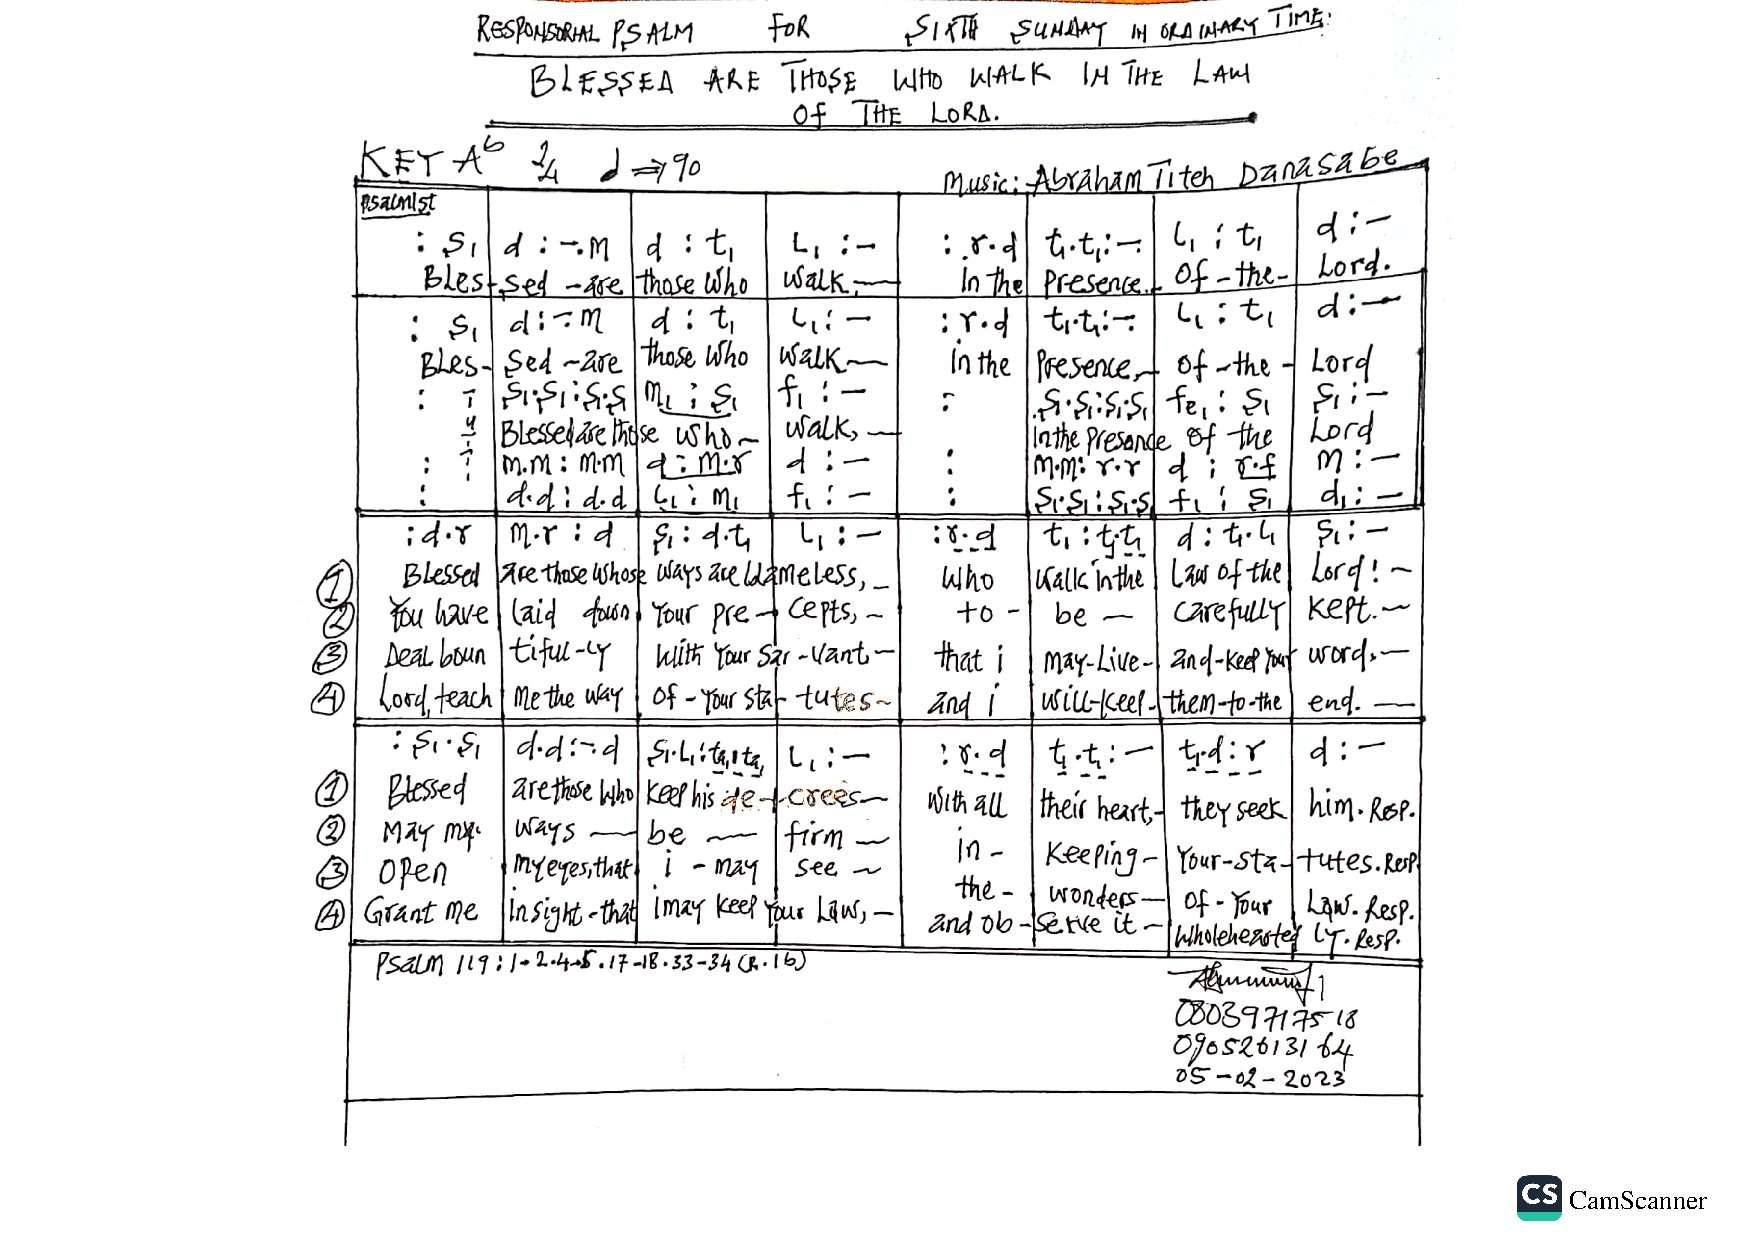 RESPONSORIAL PSALM FOR SIXTH SUNDAY IN ORDINARY TIME:
BLESSED ARE THOSE WHO WALK IN THE LAW
OF THE LORD.
KEY Ab 2/4 ♩ => 90
Music: Abraham Titeh Danasabe
Psalmist
: S₁ d : -.m d : t₁ L₁ : - : r.d t₁.t₁ : -: L₁ : t₁ d : -
Bles- sed -are those who walk, — in the Presence. of -the- Lord.
: S₁ d : -.m d : t₁ L₁ : - : r.d t₁.t₁ : -: L₁ : t₁ d : -
Bles- sed -are those who walk — in the Presence, of -the- Lord
: S₁.S₁ : S₁.S₁ m₁ : S₁ f₁ : - : S₁.S₁ : S₁.S₁ fe₁ : S₁ S₁ : -
Blessed are those who - walk, — in the Presance of the Lord
: m.m : m.m d : m.r d : - : m.m : r.r d : r.f m : -
: d.d : d.d L₁ : m₁ f₁ : - : S₁.S₁ : S₁.S₁ f₁ : S₁ d₁ : -
: d.r m.r : d S₁ : d.t₁ L₁ : - : r.d t₁ : t₁.t₁ d : t₁.L₁ S₁ : -
1 Blessed are those whose ways are blameless, - who walk in the Law of the Lord! -
2 You have laid down Your pre - cepts, - to - be — carefully kept. -
3 Deal boun tiful-ly with Your Sar -vant - that i may-Live- and-keep Your word. -
4 Lord, teach me the way of - Your sta- tutes - and i will-keep- them-to-the end. —
: S₁.S₁ d.d : -.d S₁.L₁ : ta₁.ta₁ L₁ : - : r.d t₁.t₁ : - t₁.d : r d : -
1 Blessed are those who keep his de - crees - with all their heart,- they seek him. Resp.
2 May my. ways — be — firm - in - keeping - Your-sta- tutes. Resp.
3 Open my eyes, that i - may see - the - wonders - of - Your Law. Resp.
4 Grant me insight - that i may keep Your Law, - and ob - serve it - wholehearted Ly. Resp.
Psalm 119 : 1-2.4-5.17-18.33-34 (R. 1b)
08039717518
09052613164
05-02-2023
CS CamScanner